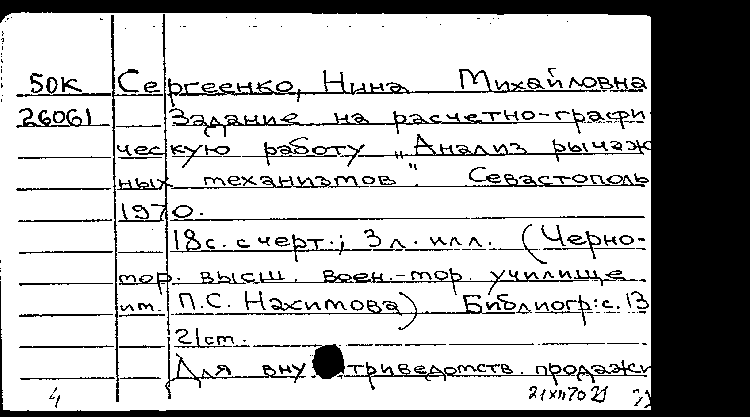 50К Сергеенко, Нина Михайловна
26061 Задание на расчетно-графи
ческую работу „Анализ рычаж
ных механизмов". Севастополь
1970.
18с. с черт.; 3 л. илл. (Черно-
мор. высш. воен.-мор. училище
им. П.С. Нахимова). Библиогр: с. 13
21см.
Для вну триведомств. продажи
4 21 XII 70